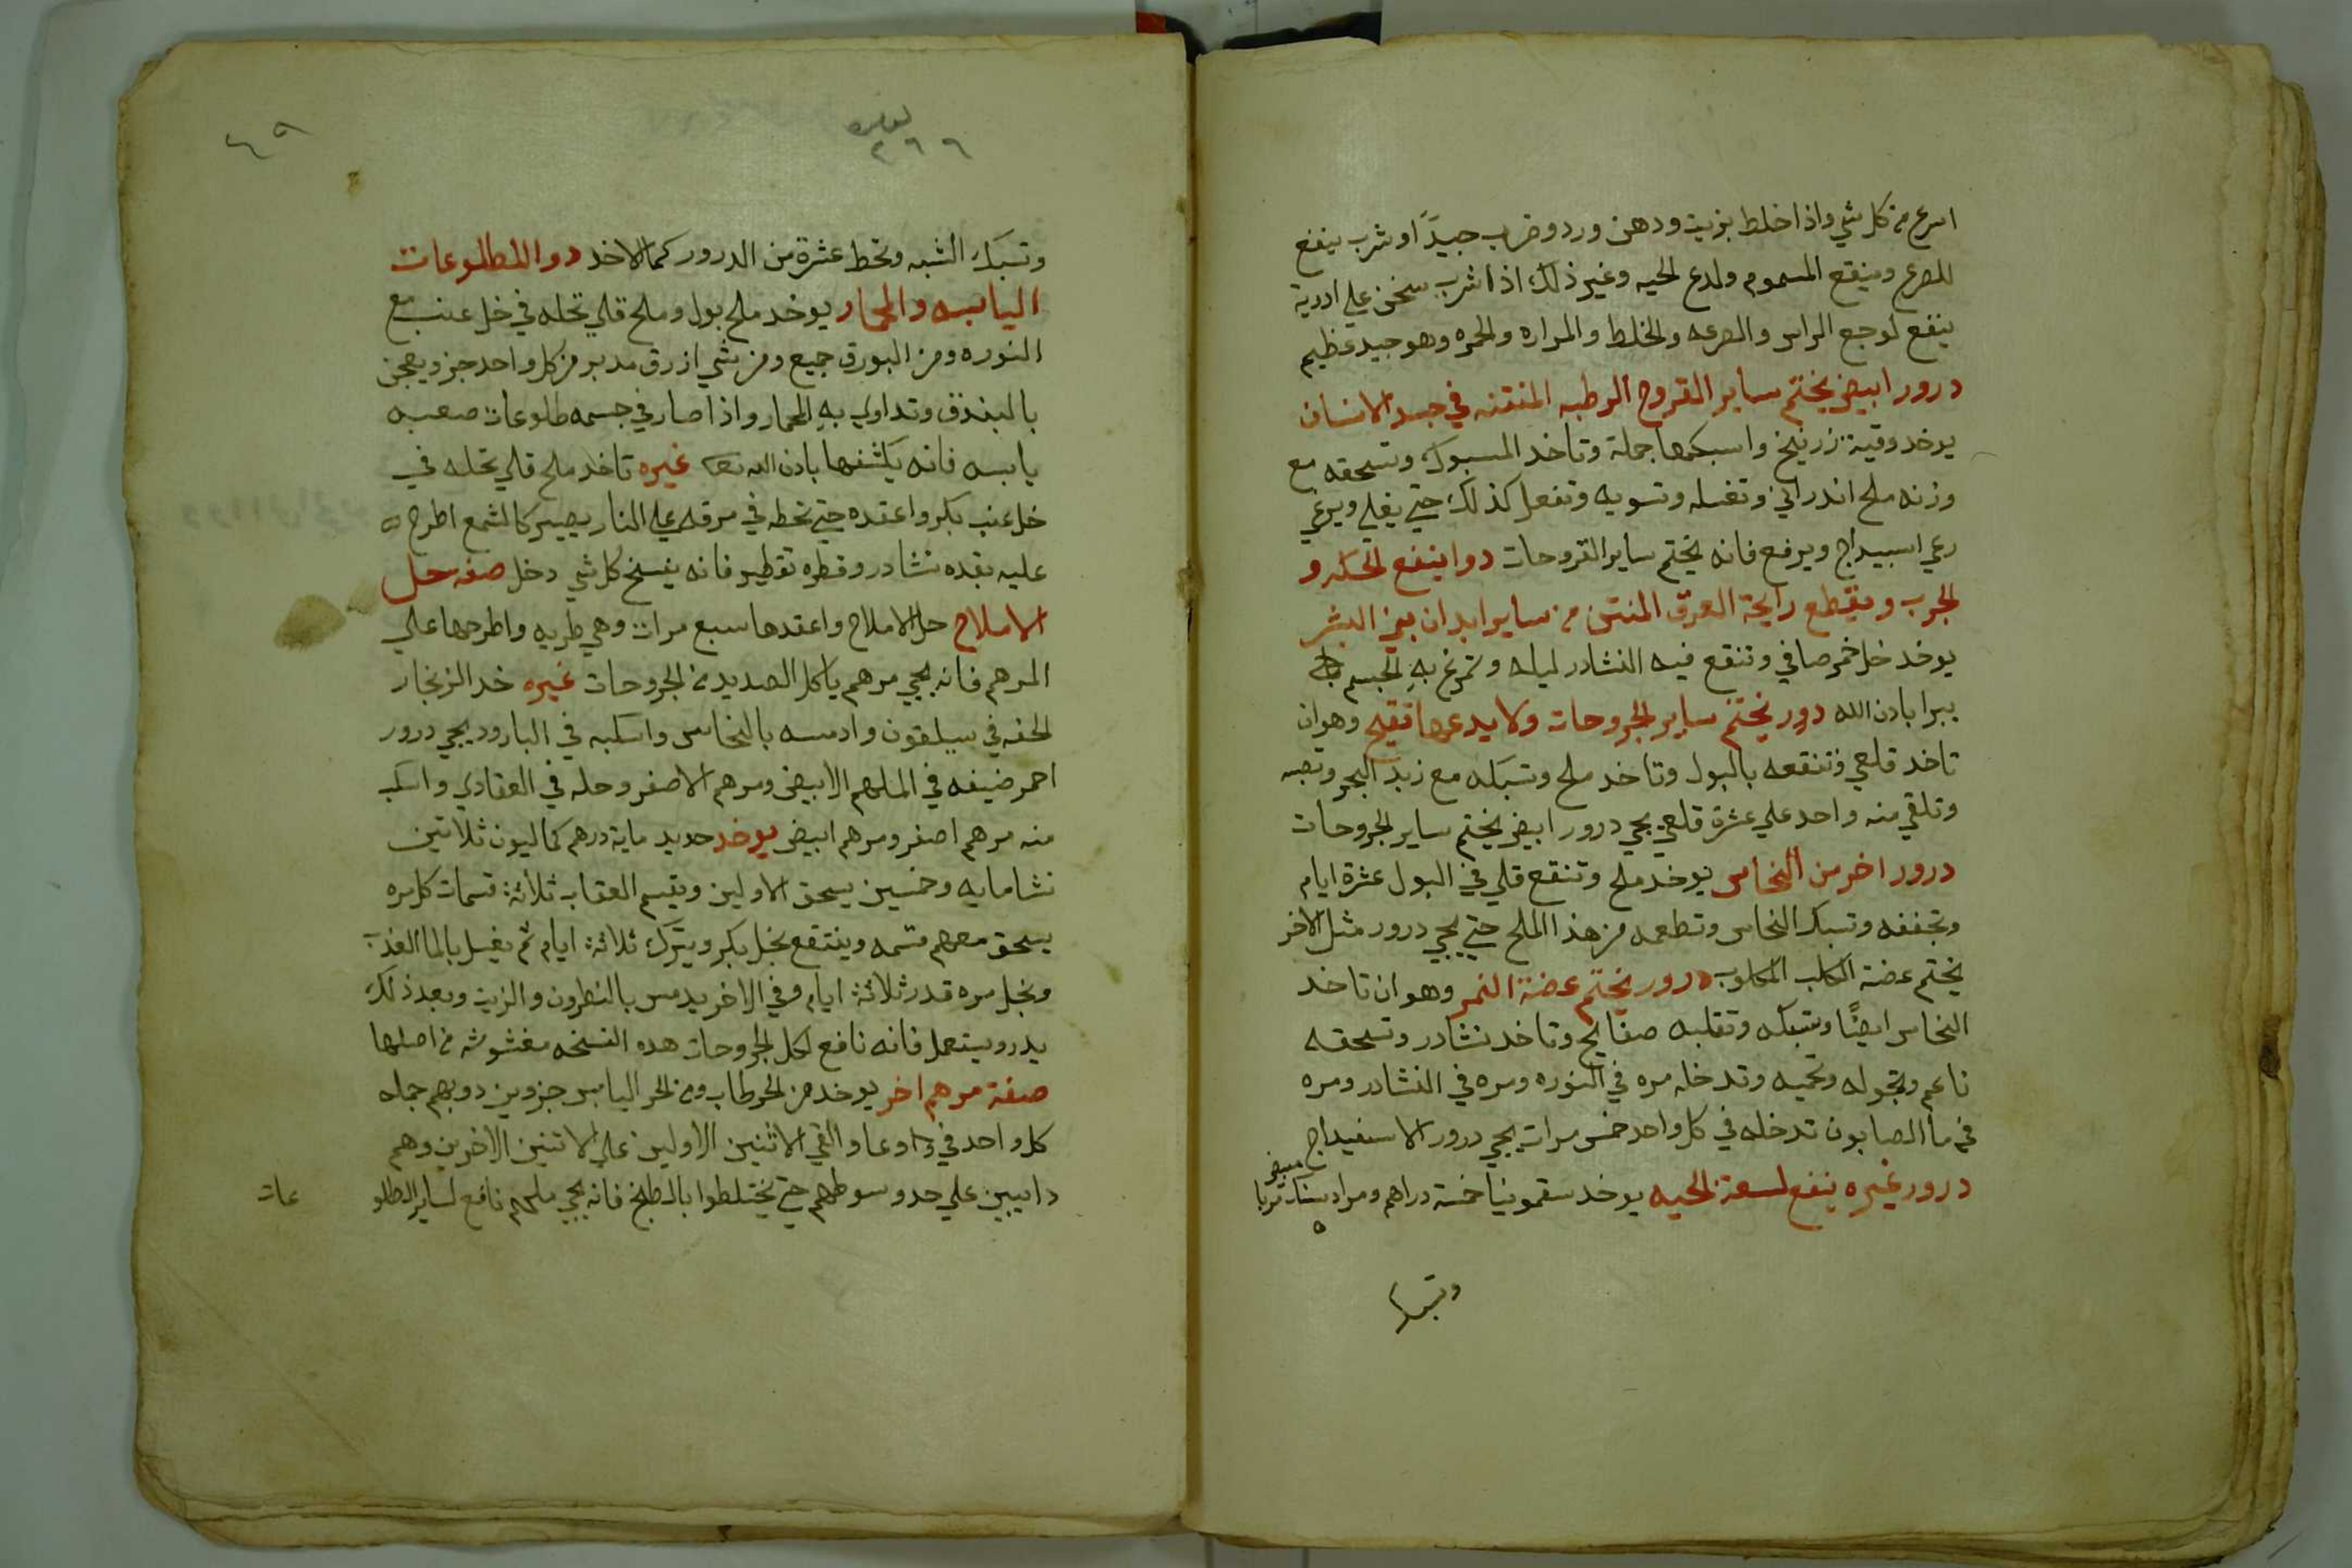 اسرع من كل شي واذا خلط بزيت ودهن ورد وضرب جيدًا وشرب ينفع
للصرع وينقع المسموم ولدع الحيه وغير ذلك اذا شرب سخن علي ادرية
ينفع لوجع الراس والصرعه والخلط والمراره والحمره وهو جيد عظيم
درور ابيض يختم ساير القروح الرطبه المنتنه في جسد الانسان
يوخد وقية زرنيخ واسبكها جملة وتاخد المسبوك وتسحقه مع
وزنه ملح اندراني وتغسله وتسويه وتفعل كذلك حتي يغلي ويرغي
رغي اسبيداج ويرفع فانه يختم ساير القروحات دوا ينفع الحكه و
الجرب ويقطع رايحة العرق المنتن من ساير ابدان بني البشر
يوخد خل خمر صافي وتنقع فيه النشادر ليله وتمرغ به الجسم
يبرا بادن الله درور يختم ساير الجروحات ولا يدعها تقيح وهو ان
تاخد قلعي وتنقعه بالبول وتاخد ملح وتسبكه مع زبد البحر وتصبه
وتلقي منه واحد علي عشرة قلعي يجي درور ابيض يختم ساير الجروحات
درور اخر من النحاس يوخد ملح وتنقع قلي في البول عشرة ايام
وتجففه وتسبك النحاس وتطعمه من هذا الملح حتي يجي درور مثل الاخر
يختم عضة الكلب المكلوب درور يختم عضة النمر وهو ان تاخد
النحاس ايضًا وتسبكه وتقلبه صفايح وتاخد نشادر وتسحقه
ناعم وتجوله وتحميه وتدخله مره في النوره ومره في النشادر ومره
في ما الصابون تدخله في كل واحد خمس مرات يجي درور الاسفيداج
درور غيره ينفع لسعة الحيه يوخد سقمونيا خمسة دراهم ومراد سنك تربا
مبيض
وتسبك
٤٩
٢٦٦
وتسبك الشبه وتحط عشرة من الدرور كمالاخد دوا الطلوعات
اليابسه والحمار يوخد ملح بول وملح قلي تحله في خل عنب مع
النوره ومن البورق جميع ومن شي ازرق مدبر من كل واحد جز ويعجن
بالبندق وتداوي به الحمار واذا صار في جسمه طلوعات صعبه
يابسه فانه يكشفها بادن الله تعالى غيره تاخد ملح قلي تحله في
خل عنب بكر واعقده حتي تحطه في مرقه علي النار يصير كالشمع اطرح
عليه بقده نشادر وقطره تقطير فانه يفسخ كل شي دخل صفه حل
الاملاح حل الاملاح واعقدها سبع مرات وهي طريه واطرحها علي
المرهم فانه يجي مرهم ياكل الصديد من الجروحات غيره خد الزنجار
الحقه في سيلقون وادمسه بالنحاس واسكبه في البارود يجي درور
احمر ضيفه في الملهم الابيض ومرهم الاصفر وحله في العقادي واسكب
منه مرهم اصفر ومرهم ابيض يوخد حديد ماية درهم كماليون ثلاتين
نشا مايه وخمسين يسحق الاولين ويقسم العقاب ثلاثة قسمات كل مره
يسحق معهم قسمه وينتقع بخل بكر ويترك ثلاثة ايام ثم يغسل بالما العذب
وبخل مره قدر ثلاثة ايام وفي الاخر يدمس بالنطرون والزيت وبعد ذلك
يدر ويستعمل فانه نافع لكل الجروحات هده النسخه مغشوشه من اصلها
صفة مرهم اخر يوخد من الخرطاب ومن الخر اليابس جزوين دوبهم جمله
كل واحد في وعا والقي الاثنين الاولين علي الاتنين الاخرين وهم
دايبين علي حد وسوطهم حتي يختلطوا بالطبخ فانه يجي ملهم نافع لساير الطلو
عات